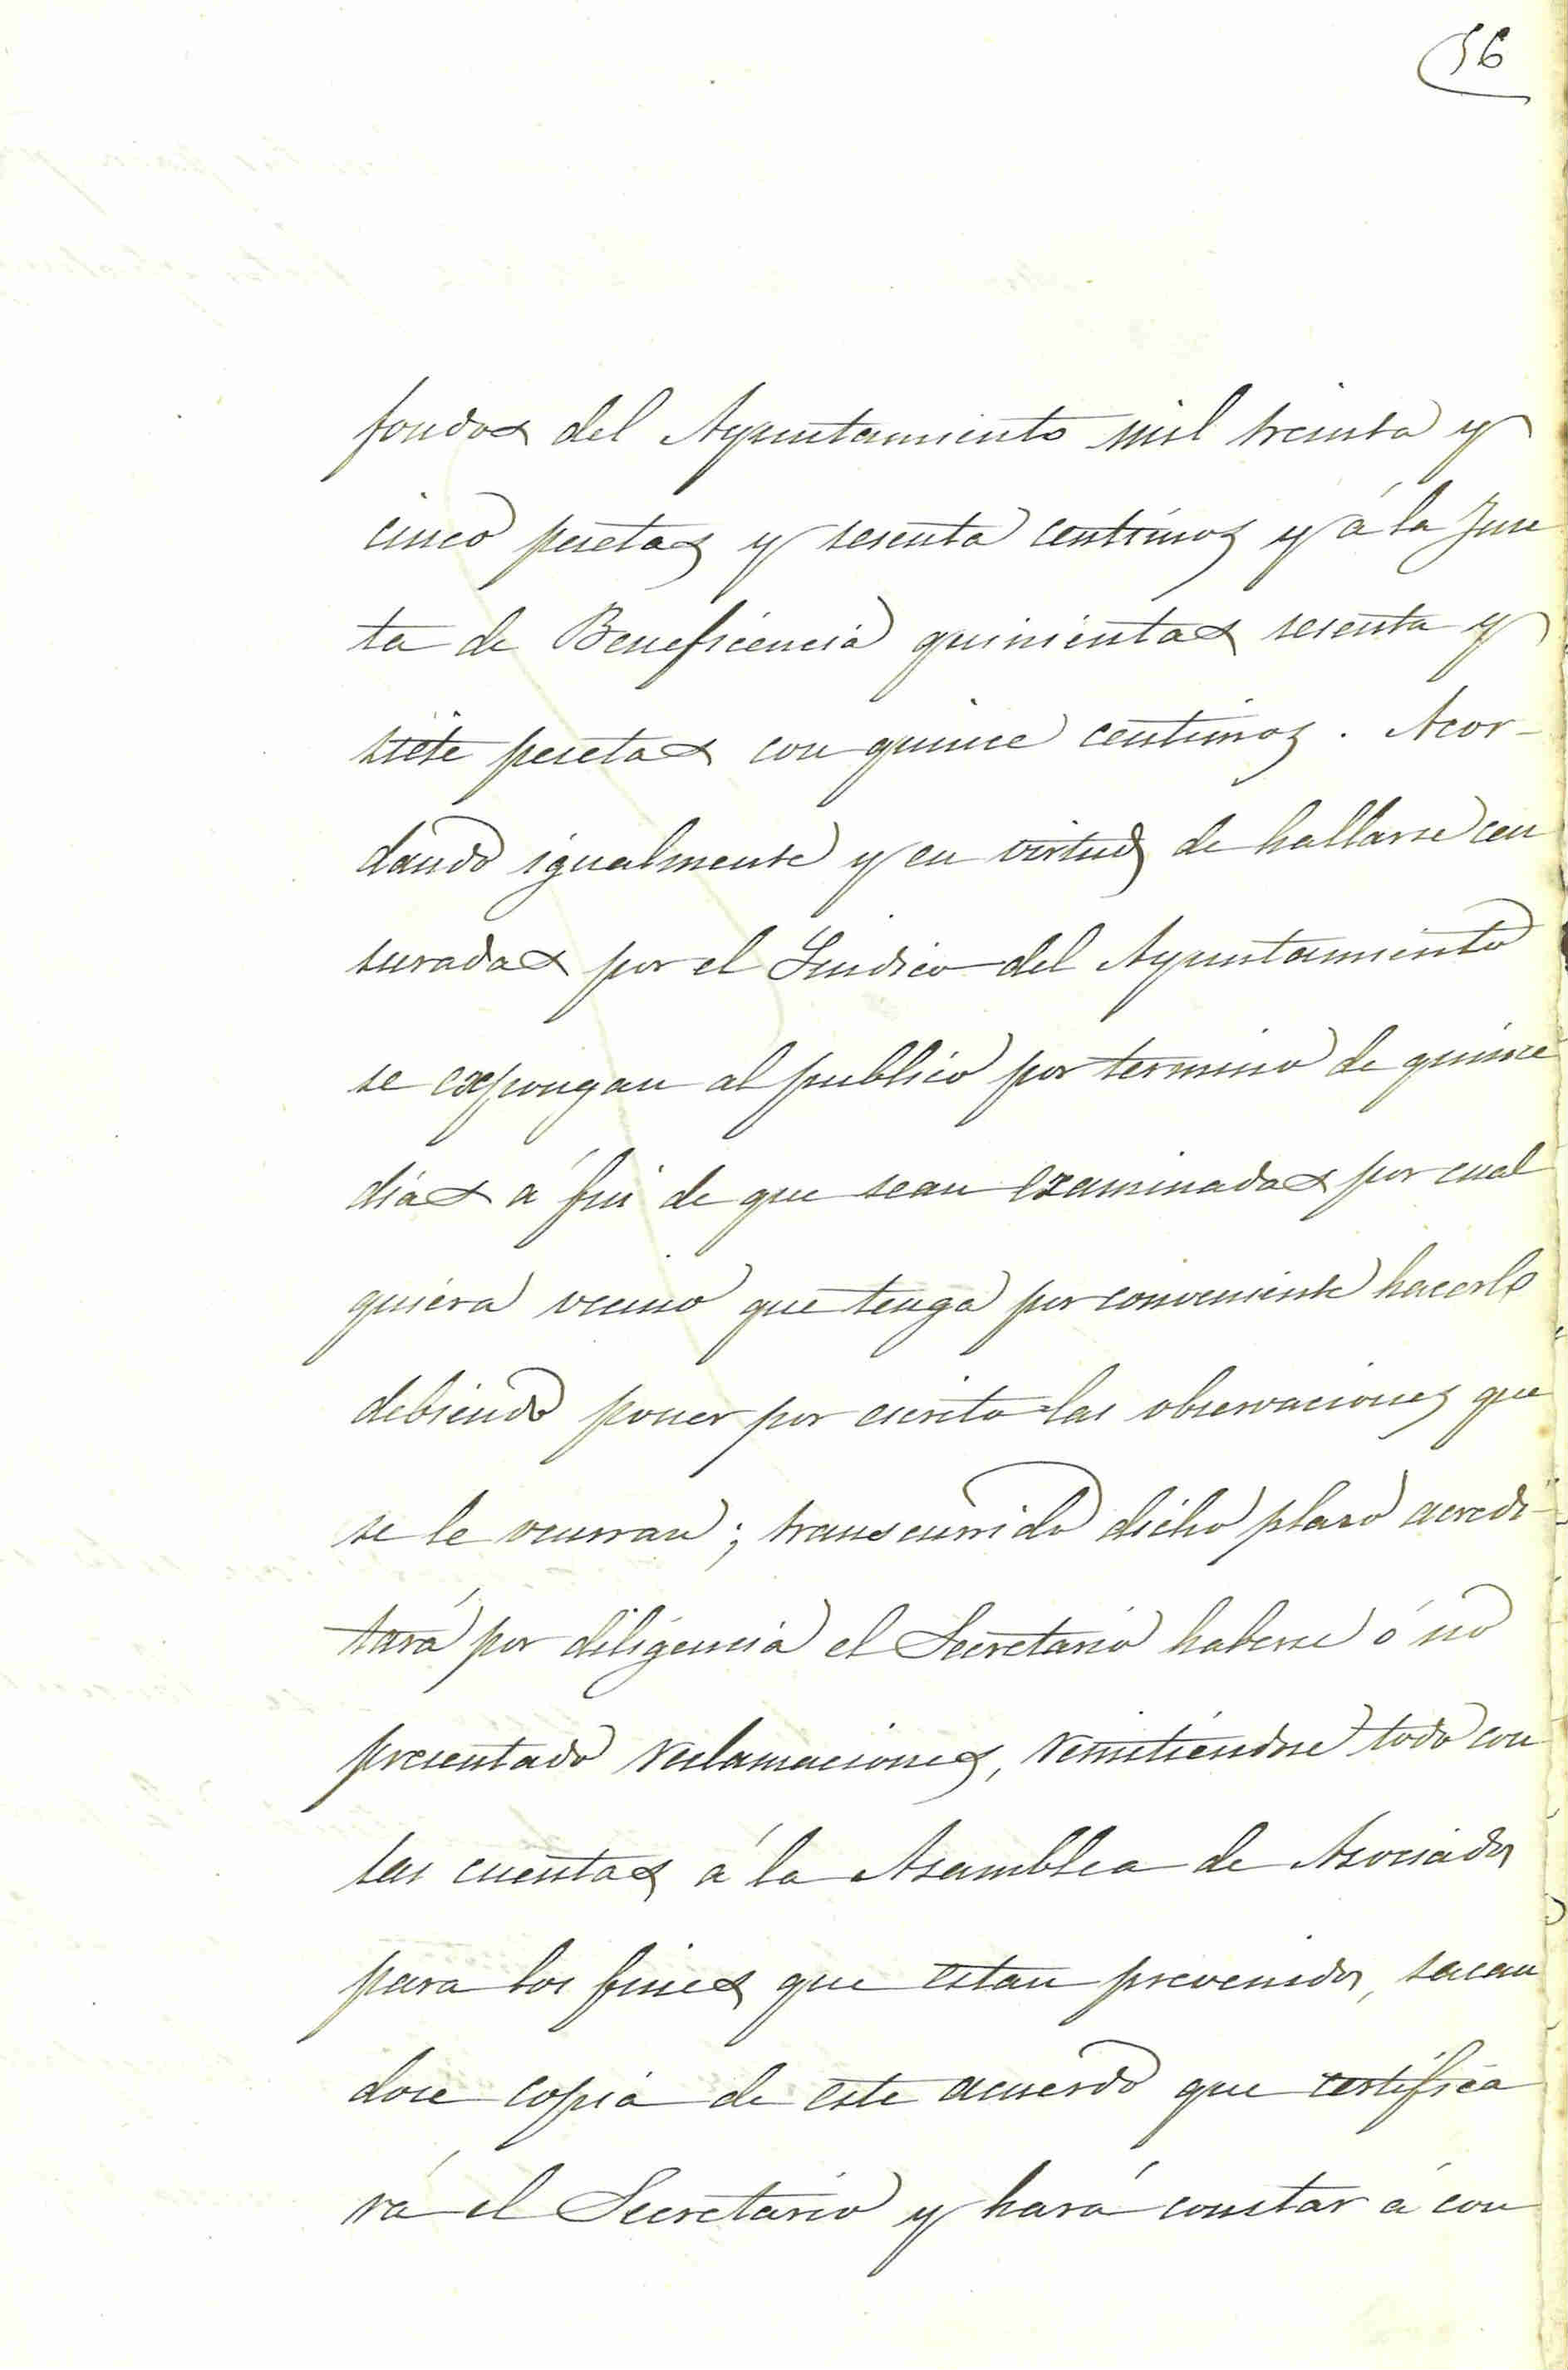 56
fondos del Ayuntamiento mil treinta y
cinco pesetas y sesenta centimos y á la Jun
ta de Beneficencia quinientas sesenta y
siete pesetas con quince centimos. Acor-
dando igualmente y en virtud de hallarse cen
suradas por el Sindico del Ayuntamiento
se expongan al publico por termino de quince
dias á fin de que sean examinadas por cual
quiera vecino que tenga por conveniente hacerlo
debiendo poner por escrito las observaciones que
se le ocurran; transcurrido dicho plazo acredi-
tará por diligencia el Secretario haberse ó no
presentado reclamaciones, remitiéndose todo con
las cuentas á la Asamblea de Asociados
para los fines que estan prevenidos, sacan
dose copia de este acuerdo que certifica
rá el Secretario y hará constar á con